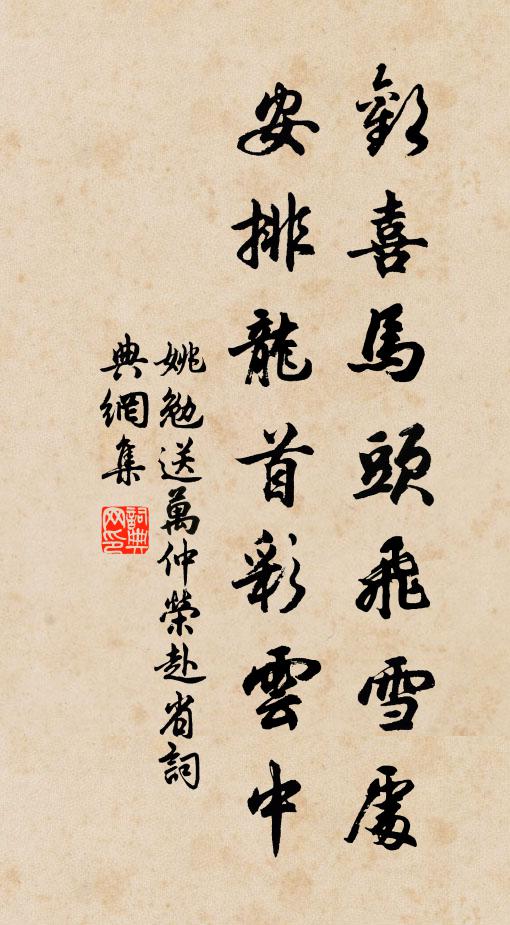 歡喜馬頭飛雪處
安排龍首彩雲中
姚勉送萬仲榮赴省詞
典網集
詞典
网印